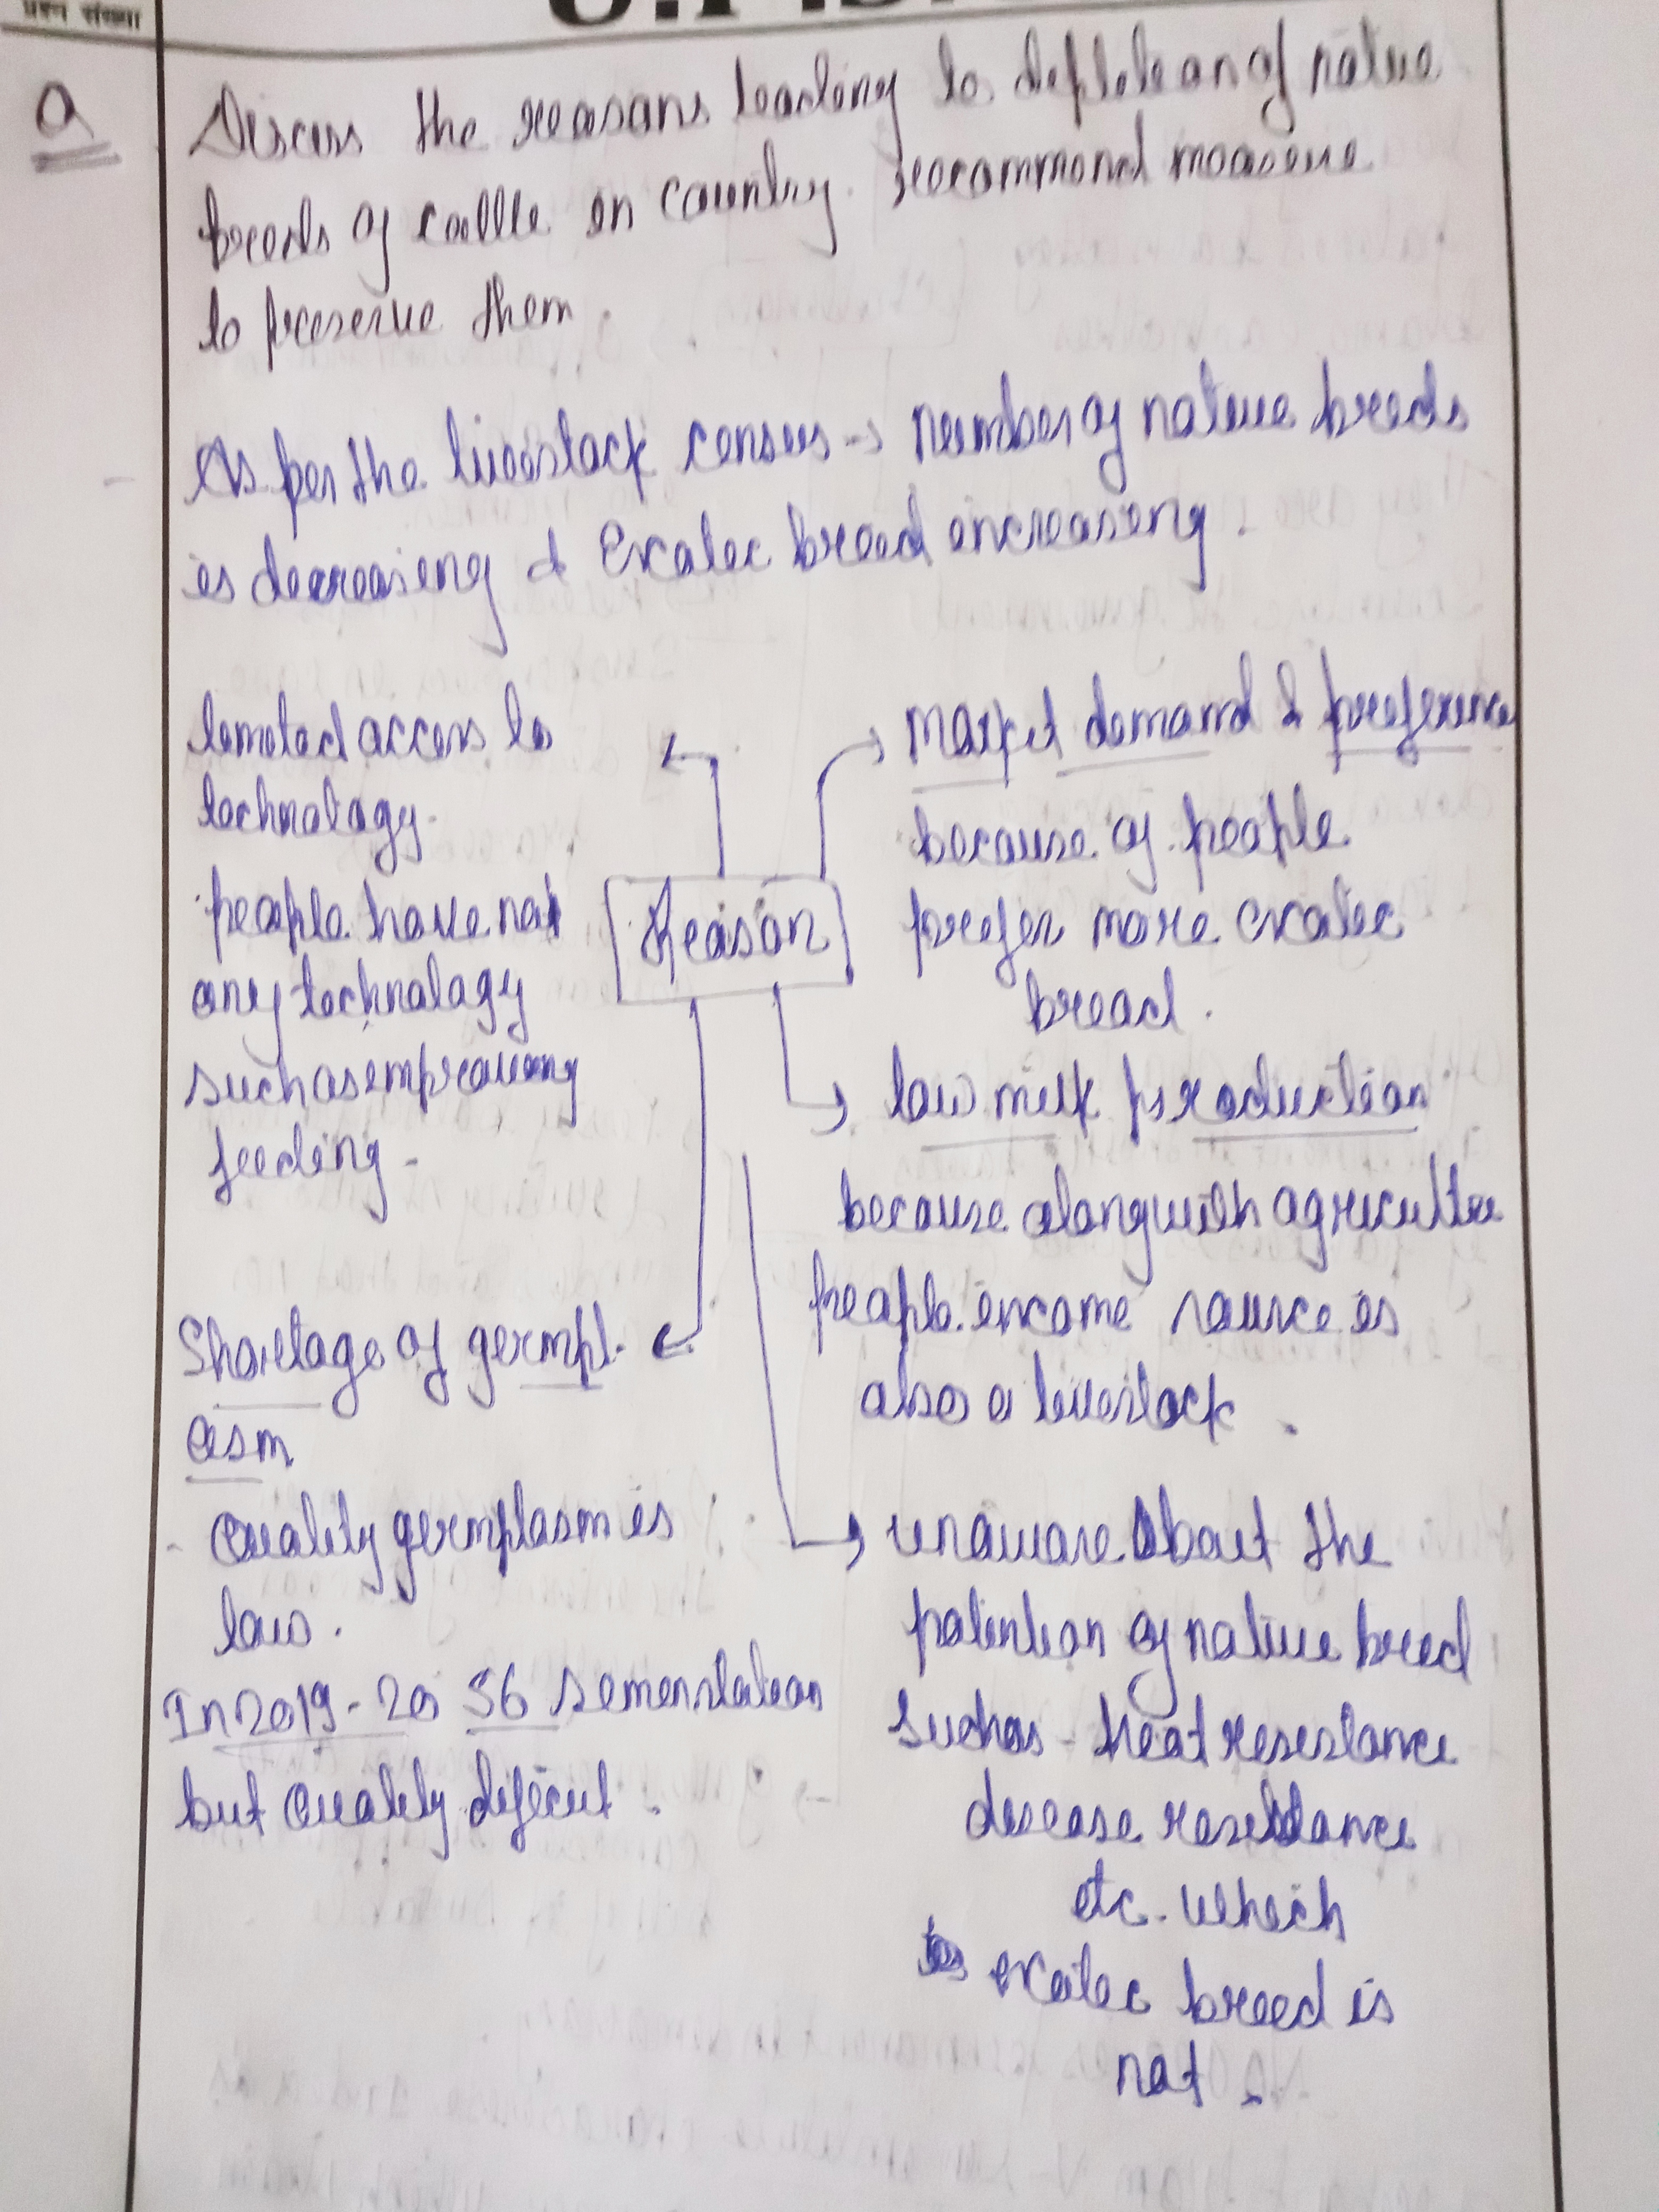 प्रश्न संख्या
Q
Discuss the reasons leading to depletean of native
breeds of cattle in country. Recommend measure
to preserve them.
As per the livestock census → Number of native breeds
is decreasing & Exotic breed increasing.
limited access to
technology.
people have not
any technology
such as improving
feeding -
Reason
Market demand & preference
because of people
prefer more exotic
breed.
low milk production
because along with agriculture
people income source is
also a livestock.
Shortage of germpl-
asm
- Quality germplasm is
low.
In 2019-20 56 semen station
but quality deficit.
unaware about the
potention of native breed
such as - heat resistance
disease resistance
etc. which
exotic breed is
not.